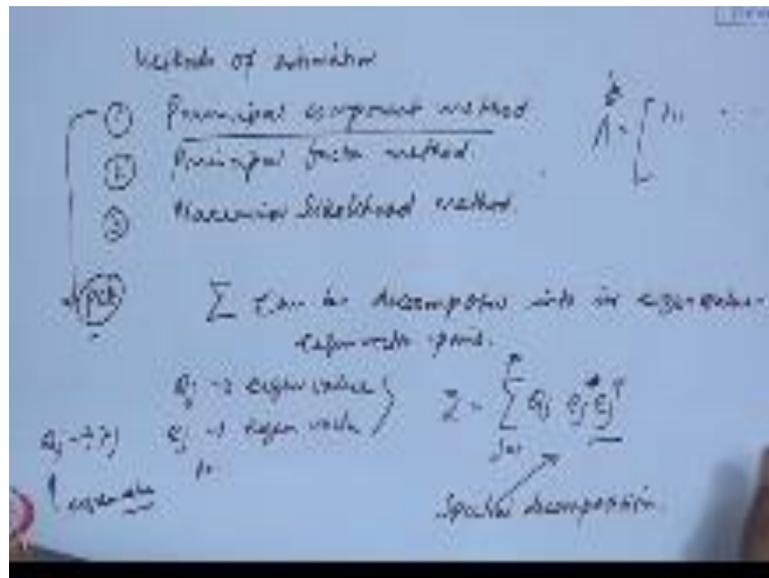 Methods of estimation
① Principal component method
② Principal factor method.
③ Maximum likelihood method.
Λ = [ λ11 . .
PCA Σ can be decomposed into its eigenvalue-
eigenvector pairs.
aj → eigen value
ej → eigen vector
Σ = Σ j=1 p aj ej ejT
aj → λj
eigenvalue
Spectral decomposition.